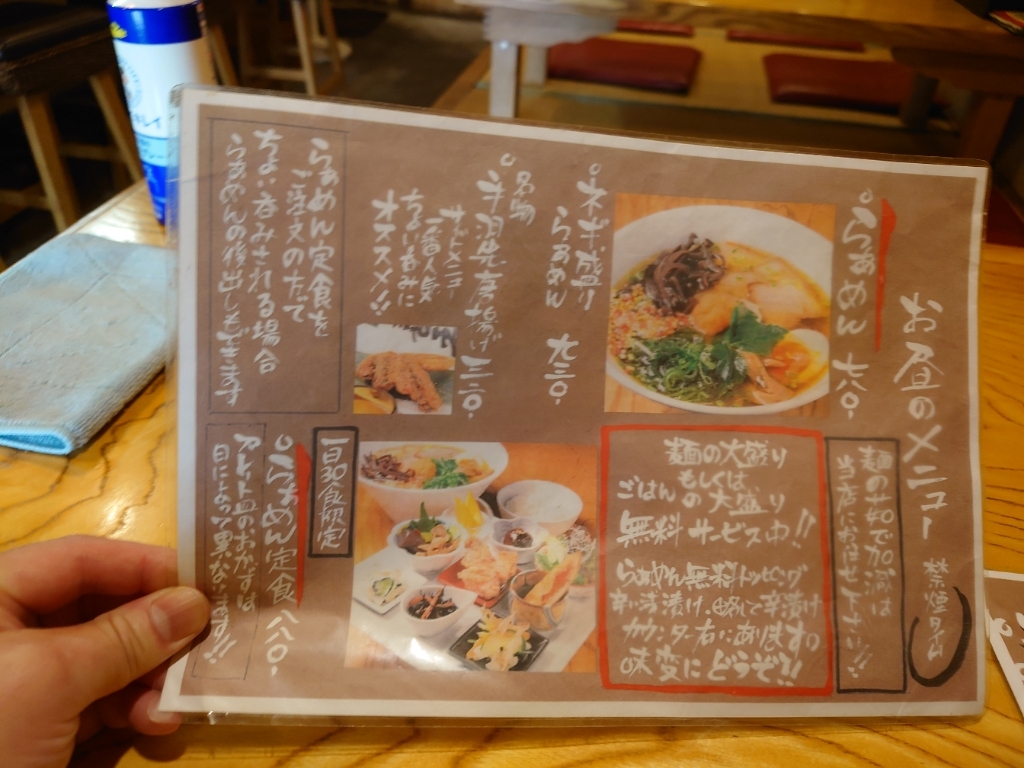 お昼のメニュー
禁煙タイム
らぁめん 七八〇.
麺のゆで加減は
当店にお任せ下さい!!
ネギ盛り
らぁめん 九三〇.
名物
手羽先唐揚げ 三二〇.
サイドメニュー
一番人気
ちょい呑みに
オススメ!!
らぁめん定食を
ご注文の方で
ちょい呑みされる場合
らぁめんの後出しもできます
麺の大盛り
もしくは
ごはんの大盛り
無料サービス中!!
らぁめん無料トッピング
辛い高菜漬け、略して辛漬け
カウンター右にあります。
味変にどうぞ!!
らぁめん定食 八八〇.
プレート皿のおかずは
日によって異なります!!